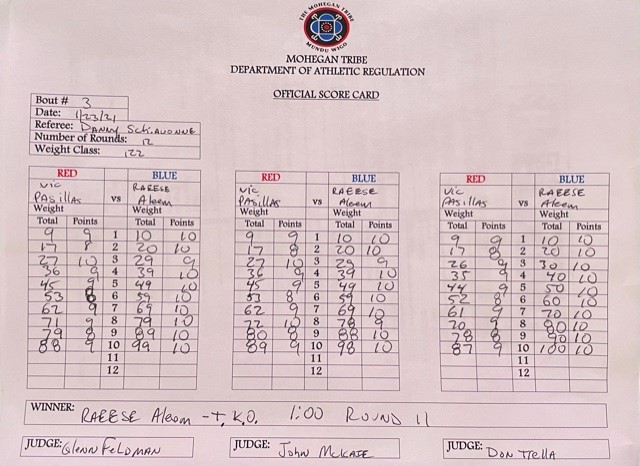 THE MOHEGAN TRIBE
MUNDU WIGO
MOHEGAN TRIBE
DEPARTMENT OF ATHLETIC REGULATION
OFFICIAL SCORE CARD
Bout # 3
Date: 1/23/21
Referee: DANNY SCHIAVONNE
Number of Rounds: 12
Weight Class: 122
RED BLUE RED BLUE RED BLUE
Vic RAEESE Vic RAEESE Vic RAEESE
PASillAS vs Aleem PASillAS vs Aleem PASillAS vs Aleem
Weight Weight Weight Weight Weight Weight
Total Points Total Points Total Points Total Points Total Points Total Points
9 9 1 10 10 9 9 1 10 10 9 9 1 10 10
17 8 2 20 10 17 8 2 20 10 17 8 2 20 10
27 10 3 29 9 27 10 3 29 9 26 9 3 30 10
36 9 4 39 10 36 9 4 39 10 35 9 4 40 10
45 9 5 49 10 45 9 5 49 10 44 9 5 50 10
53 8 6 59 10 53 8 6 59 10 52 8 6 60 10
62 9 7 69 10 62 9 7 69 10 61 9 7 70 10
71 9 8 79 10 72 10 8 78 9 70 9 8 80 10
79 8 9 89 10 80 8 9 88 10 78 8 9 90 10
88 9 10 99 10 89 9 10 98 10 87 9 10 100 10
11 11 11
12 12 12
WINNER: RAEESE Aleem - T.K.O. 1:00 ROUND 11
JUDGE: Glenn FeLDMAN JUDGE: John McKAIE JUDGE: DON TRella